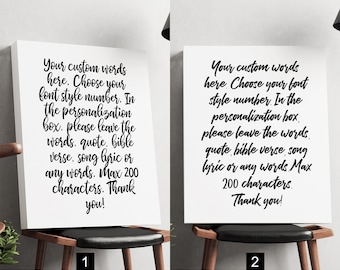 Your custom words
here. Choose your
font style number. In
the personalization
box, please leave the
words, quote, bible
verse, song lyric or
any words. Max 200
characters. Thank
you!
1
Your custom words
here. Choose your font
style number. In the
personalization box,
please leave the words,
quote bible verse, song
lyric or any words. Max
200 characters.
Thank you!
2